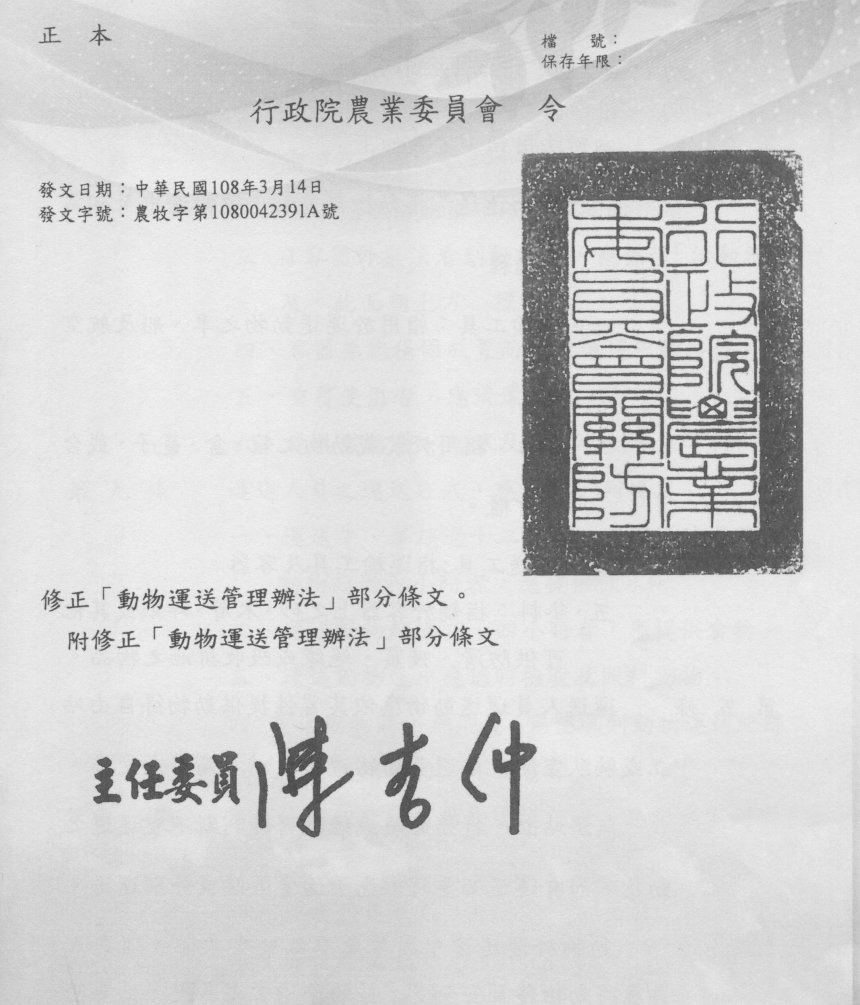 正本
檔號：
保存年限：
行政院農業委員會 令
發文日期：中華民國108年3月14日
發文字號：農牧字第1080042391A號
行政院農業
委員會關防
修正「動物運送管理辦法」部分條文。
附修正「動物運送管理辦法」部分條文
主任委員 陳吉仲